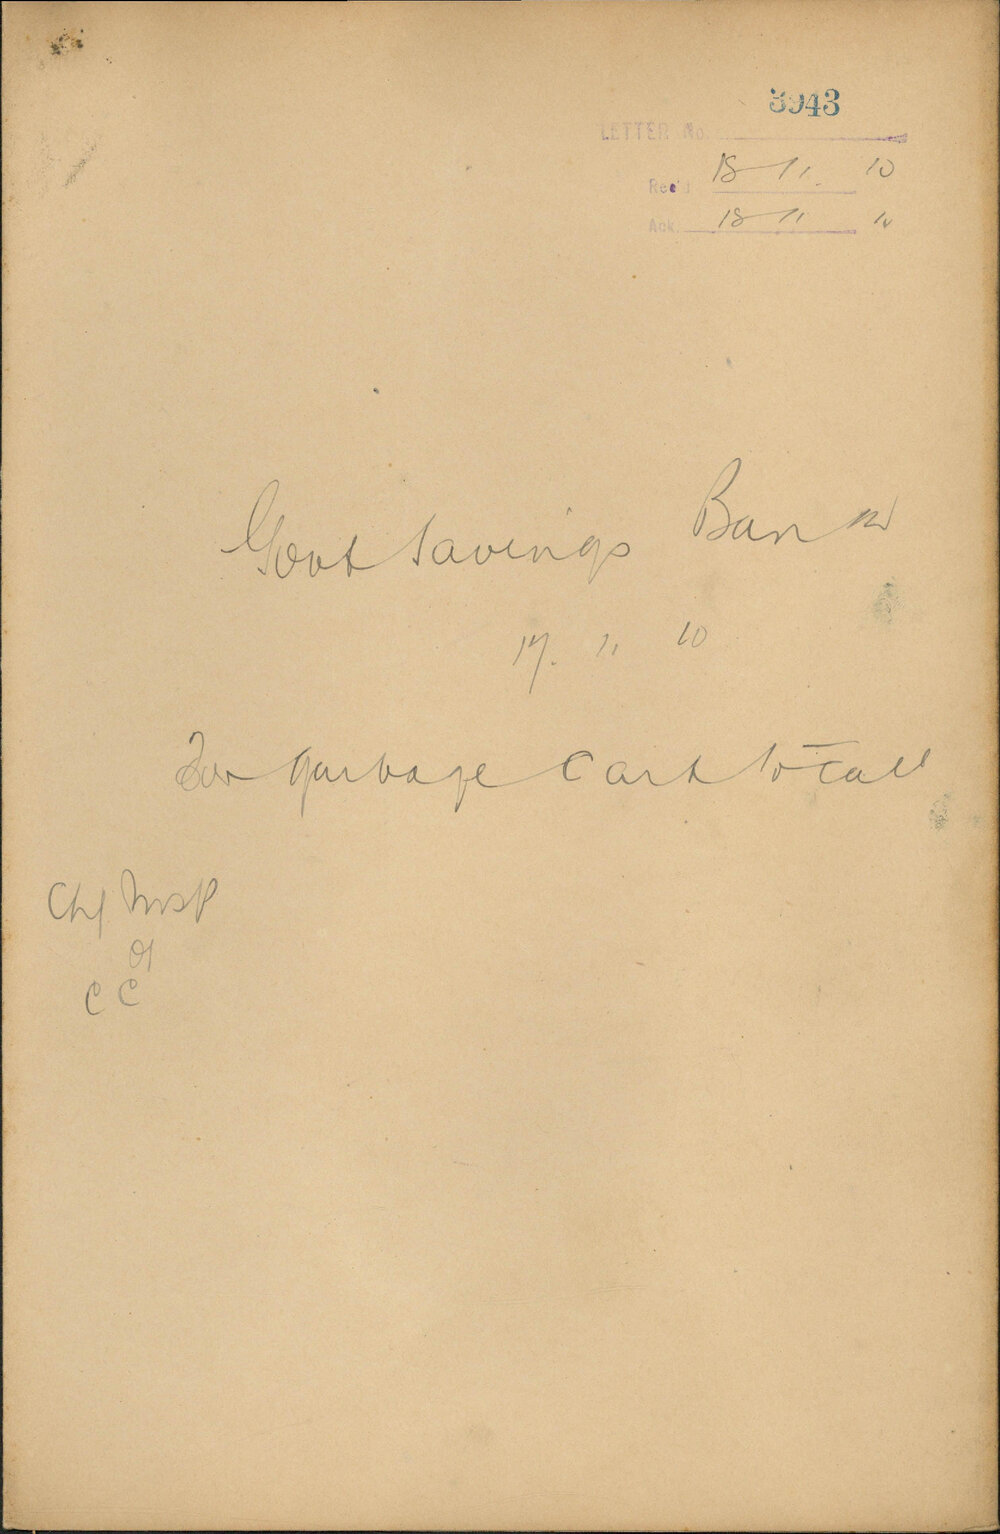 3943
LETTER No.
Rec'd 18 11. 10
Ack. 18 11 10
Govt Savings Bank
17. 11 10
For garbage cart to call
Chf Insp
of
C C